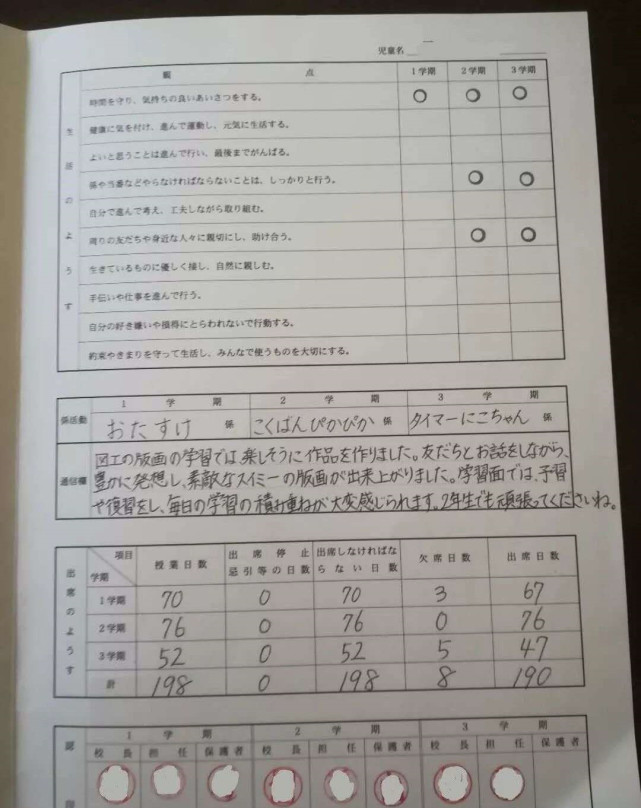 児童名
観 点 1学期 2学期 3学期
生活のようす
時間を守り、気持ちの良いあいさつをする。 ○ ○ ○
健康に気を付け、進んで運動し、元気に生活する。
よいと思うことは進んで行い、最後までがんばる。
係や当番などやらなければならないことは、しっかりと行う。 ○ ○
自分で進んで考え、工夫しながら取り組む。
周りの友だちや身近な人々に親切にし、助け合う。 ○ ○
生きているものに優しく接し、自然に親しむ。
手伝いや仕事を進んで行う。
自分の好き嫌いや損得にとらわれないで行動する。
約束やきまりを守って生活し、みんなで使うものを大切にする。
係活動
1 学 期 2 学 期 3 学 期
おたすけ 係 こくばんぴかぴか 係 タイマーにこちゃん 係
通信欄
図工の版画の学習では楽しそうに作品を作りました。友だちとお話をしながら、
豊かに発想し、素敵なスイミーの版画が出来上がりました。学習面では、予習
や復習をし、毎日の学習の積み重ねが大変感じられます。2年生でも頑張ってくださいね。
出席のようす
項目 学期 授業日数 出席停止忌引等の日数 出席しなければならない日数 欠席日数 出席日数
1学期 70 0 70 3 67
2学期 76 0 76 0 76
3学期 52 0 52 5 47
計 198 0 198 8 190
認
1 学 期 2 学 期 3 学 期
校長 担任 保護者 校長 担任 保護者 校長 担任 保護者